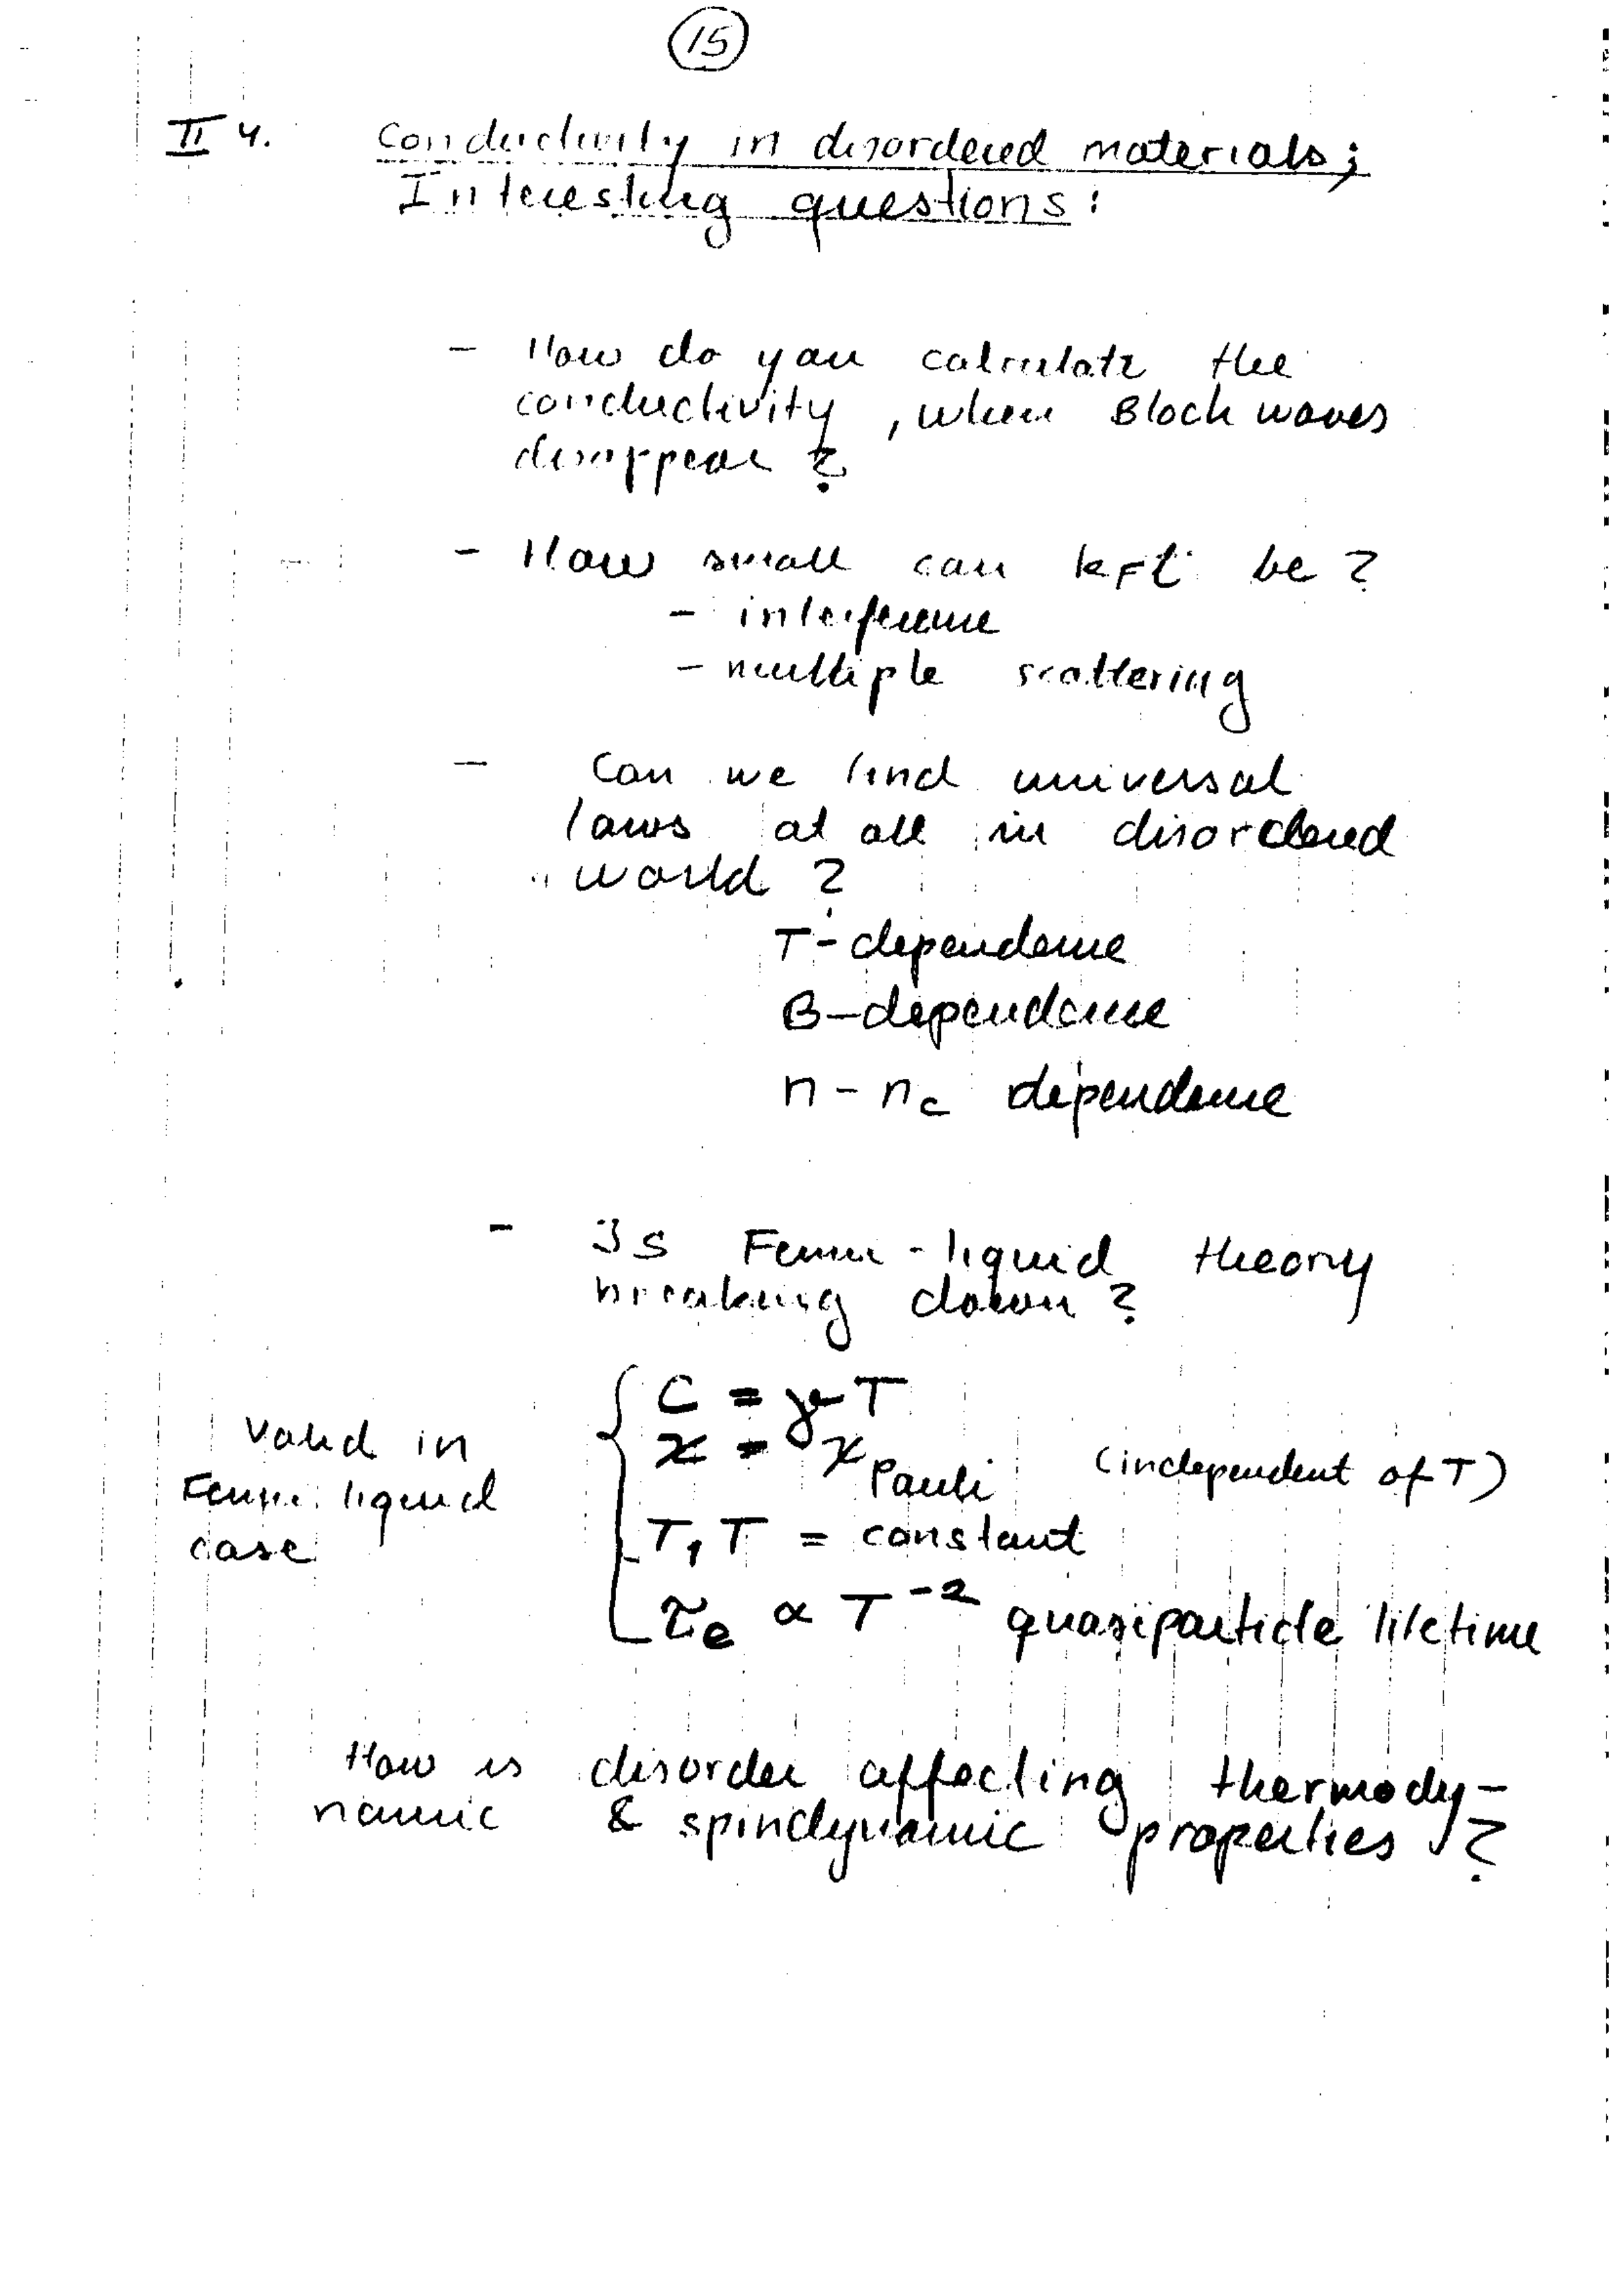 15
II 4. Conductivity in disordered materials;
Interesting questions:
- How do you calculate the
conductivity, when Bloch waves
disappear?
- How small can kFℓ be?
- interference
- multiple scattering
- Can we find universal
laws at all in disordered
world?
T-dependence
B-dependence
n-nc dependence
- Is Fermi-liquid theory
breaking down?
C = γT
χ = χPauli (independent of T)
T1T = constant
τe ∝ T^-2 quasiparticle lifetime
Valid in
Fermi liquid
case
How is disorder affecting thermody-
namic & spindynamic properties?